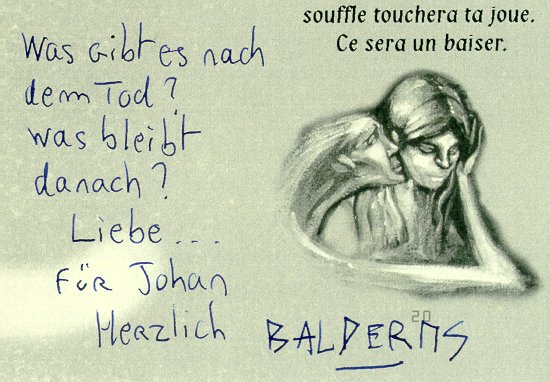 souffle touchera ta joue.
Ce sera un baiser.
Was gibt es nach
dem Tod?
was bleibt
danach?
Liebe...
Für Johan
Herzlich
BALDERMS
20